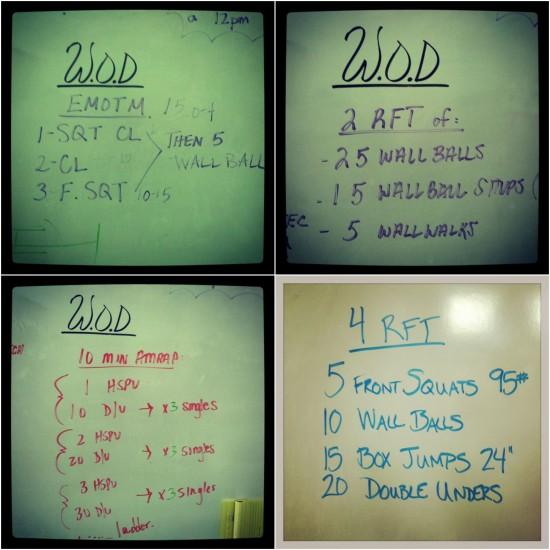 a 12pm
W.O.D
EMOTM 15
1-SQT CL
2-CL
3-F. SQT 10-15
THEN 5
WALL BALL
W.O.D
2 RFT of:
- 25 WALL BALLS
- 15 WALL BALL SITUPS
- 5 WALL WALKS
W.O.D
10 MIN AMRAP:
1 HSPU
10 D/U → x3 singles
2 HSPU
20 D/U → x3 singles
3 HSPU
30 D/U → x3 singles
ladder.
4 RFT
5 FRONT SQUATS 95#
10 WALL BALLS
15 BOX JUMPS 24"
20 DOUBLE UNDERS